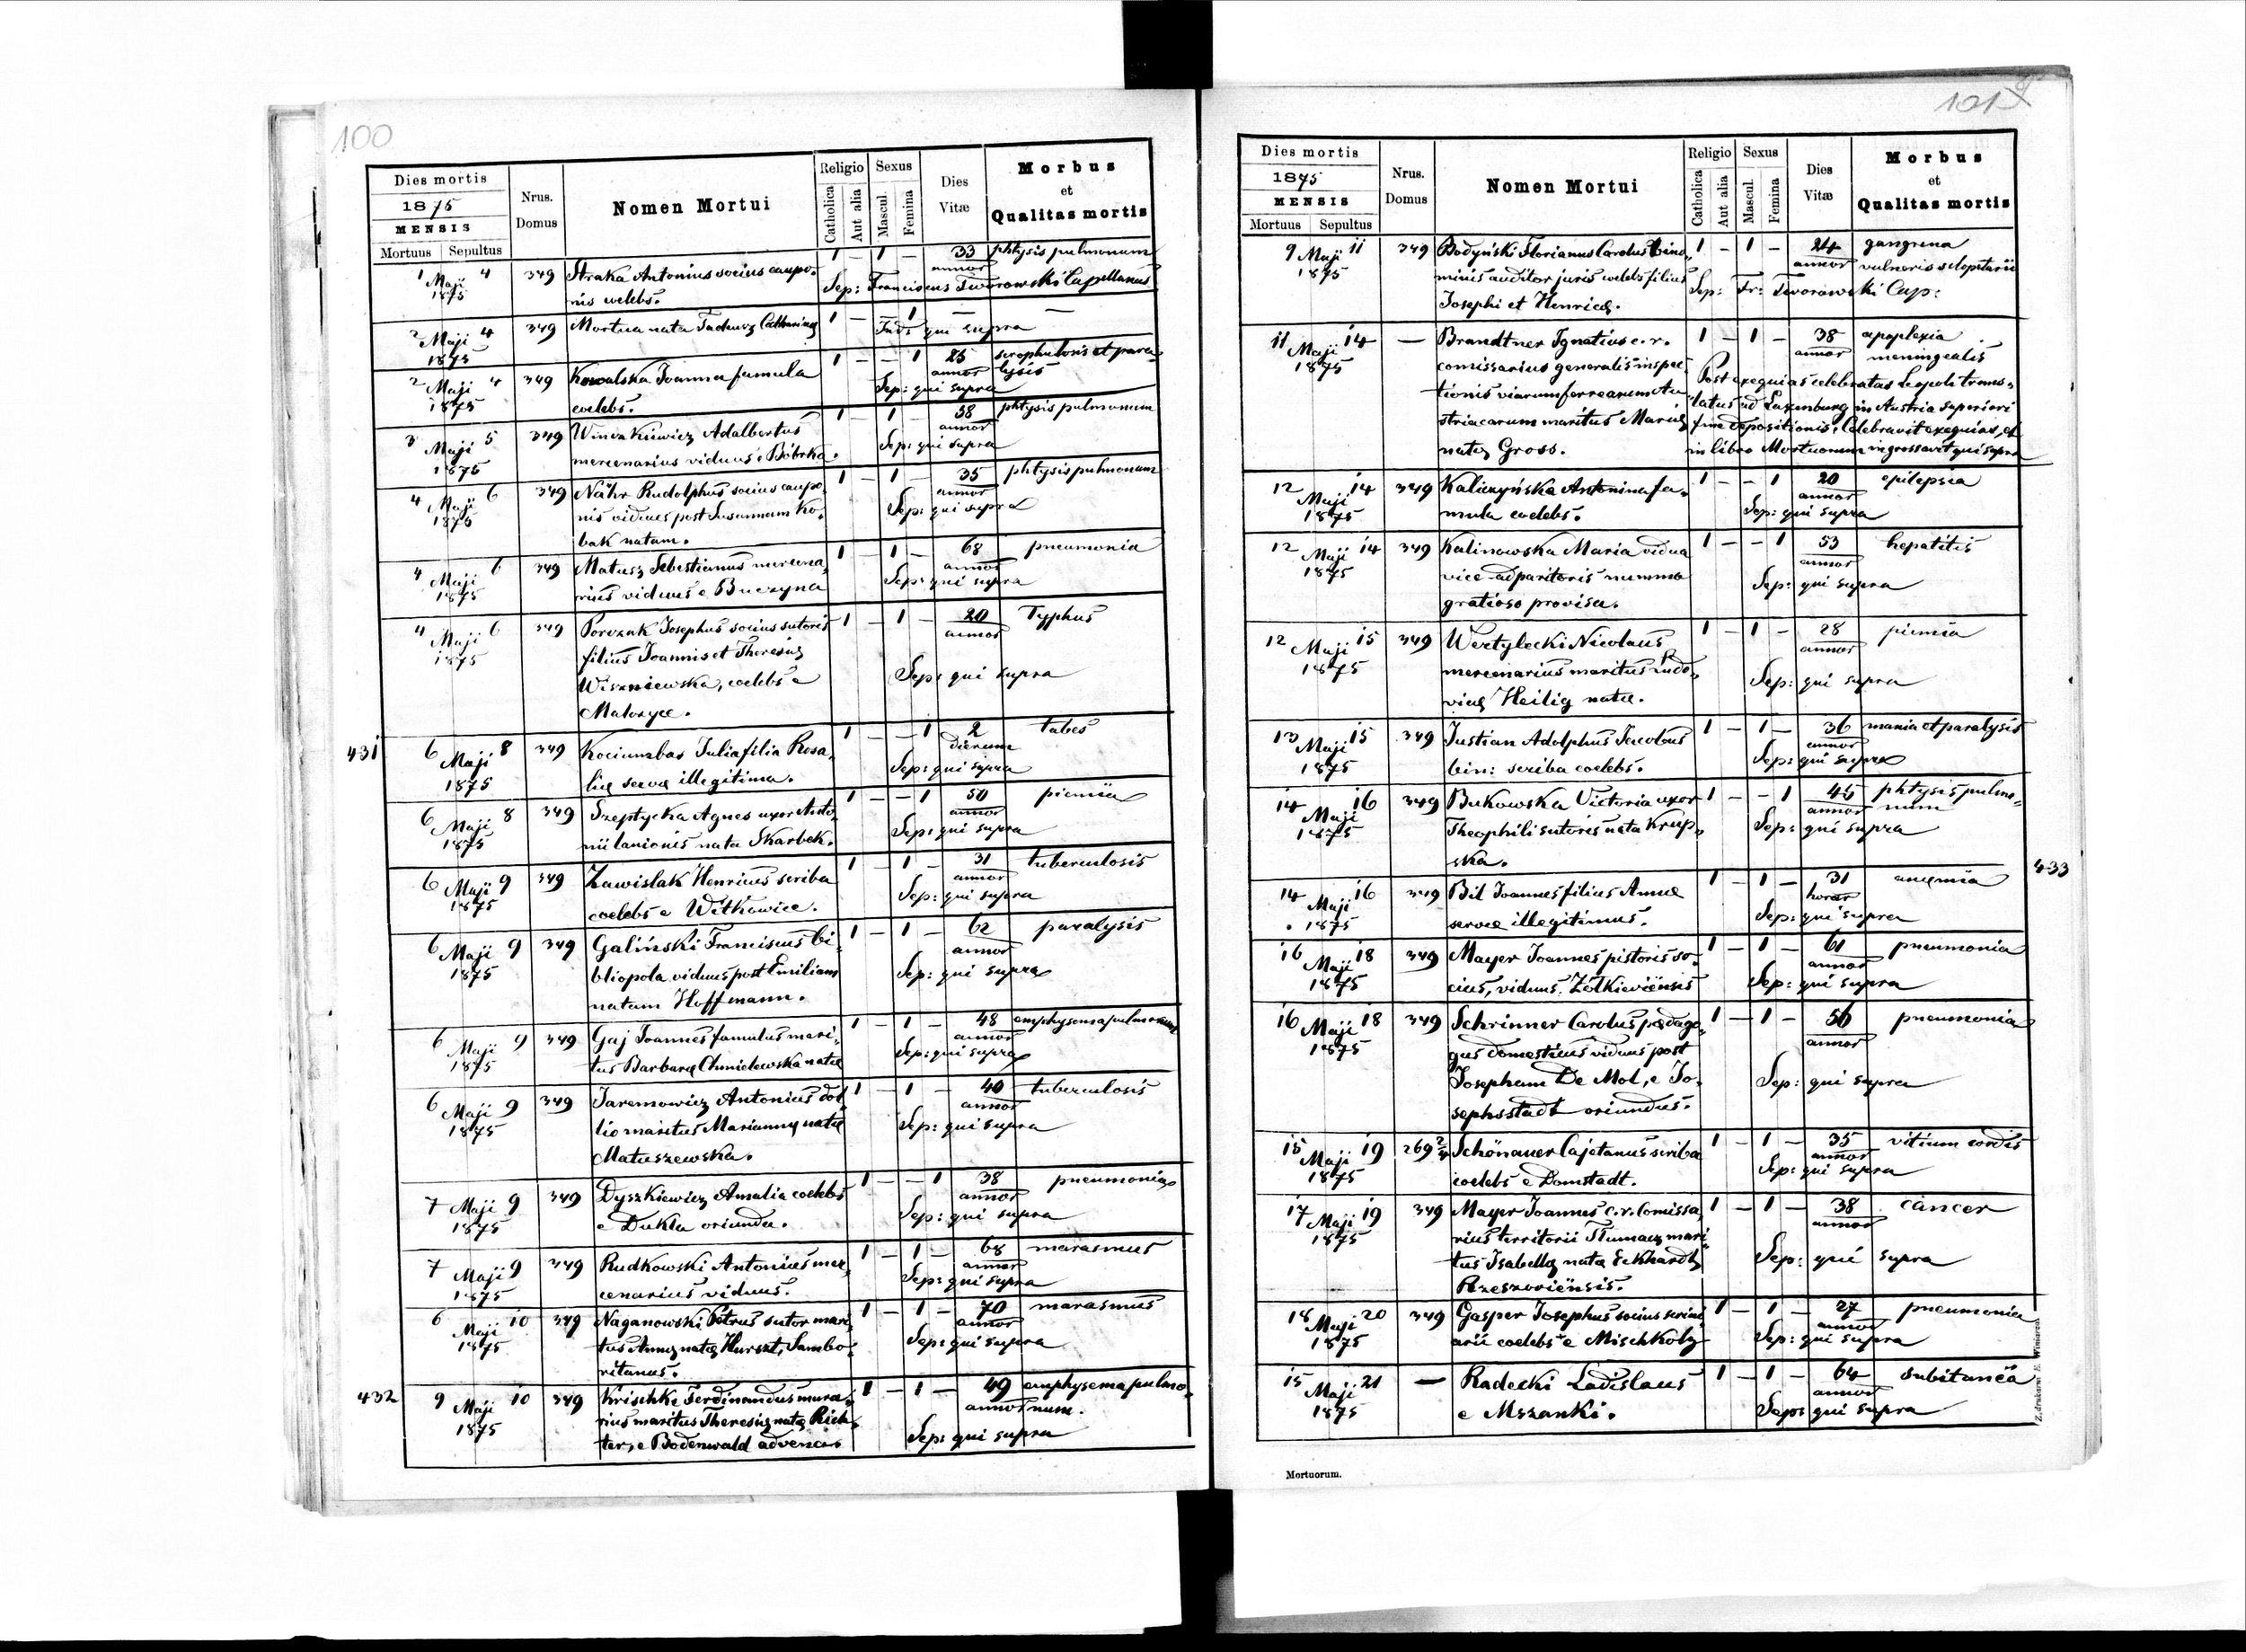 100
Dies mortis
1875
MENSIS
Mortuus Sepultus
Nrus. Domus
Nomen Mortui
Religio
Catholica
Aut alia
Sexus
Mascul.
Femina
Dies Vitæ
Morbus et Qualitas mortis
1 Maji 4 1875 349 Straka Antonius socius caupo- 1 – 1 – 33 annor phtysis pulmonum
nis coelebs. Sep: Franciscus Tworowski Capellanus
2 Maji 4 1875 349 Mortua nata Tadeusz Catharinæ 1 – 1 – –
Ind. qui supra
2 Maji 4 1875 349 Kowalska Joanna famula 1 – – 1 25 annor scrophulosis et para-
coelebs. Sep: qui supra lysis
3 Maji 5 1875 349 Winczkiewicz Adalbertus 1 – 1 – 58 annor phtysis pulmonum
mercenarius viduus e Bóbrka. Sep: qui supra
4 Maji 6 1875 349 Nähr Rudolphus socius caupo- 1 – 1 – 35 annor phtysis pulmonum
nis viduus post Susannam Ko- Sep: qui supra
bak natam.
4 Maji 6 1875 349 Matusz Sebestianus mercena- 1 – 1 – 68 annor pneumonia
rius viduus e Buczyna Sep: qui supra
4 Maji 6 1875 349 Porczak Josephus socius sutoris 1 – 1 – 20 annor Typhus
filius Joannis et Theresiæ
Wiszniewska, coelebs e Sep: qui supra
Malczyce.
431 6 Maji 8 1875 349 Kociumbas Julia filia Rosa- 1 – – 1 2 dierum tabes
liæ servæ illegitima. Sep: qui supra
6 Maji 8 1875 349 Szeptycka Agnes uxor Anto- 1 – – 1 50 annor piemia
nii lanionis nata Skarbek. Sep: qui supra
6 Maji 9 1875 349 Zawislak Henricus scriba 1 – 1 – 31 annor tuberculosis
coelebs e Witkowice. Sep: qui supra
6 Maji 9 1875 349 Galiński Franciscus bi- 1 – 1 – 62 annor paralysis
bliopola viduus post Emiliam Sep: qui supra
natam Hoffmann.
6 Maji 9 1875 349 Gaj Joannes famulus mari- 1 – 1 – 48 annor emphysema pulmonum
tus Barbaræ Chmielewska natæ Sep: qui supra
6 Maji 9 1875 349 Jaremowicz Antonius dol- 1 – 1 – 40 annor tuberculosis
lio maritus Mariannæ natæ Sep: qui supra
Matuszewska.
7 Maji 9 1875 349 Dyszkiewicz Amalia coelebs 1 – – 1 38 annor pneumonia
e Dukla oriunda. Sep: qui supra
7 Maji 9 1875 349 Rudkowski Antonius mer- 1 – 1 – 68 annor marasmus
cenarius viduus. Sep: qui supra
6 Maji 10 1875 349 Naganowski Petrus sutor mari- 1 – 1 – 70 annor marasmus
tus Annæ natæ Hurszt, Sambo- Sep: qui supra
ritanus.
432 9 Maji 10 1875 349 Krischke Ferdinandus mura- 1 – 1 – 49 annor emphysema pulmo-
rius maritus Theresiæ natæ Rich- num.
ter, e Bodenwald advena Sep: qui supra
101
Dies mortis
1875
MENSIS
Mortuus Sepultus
Nrus. Domus
Nomen Mortui
Religio
Catholica
Aut alia
Sexus
Mascul.
Femina
Dies Vitæ
Morbus et Qualitas mortis
9 Maji 11 1875 349 Bodyński Florianus Carolus bino- 1 – 1 – 24 annor gangrena
minis auditor juris coelebs filius vulneris sclopetarii
Josephi et Henricæ. Sep: Fr: Tworowski Cap:
11 Maji 14 1875 — Brandtner Ignatius c. r. 1 – 1 – 38 annor apoplexia
comissarius generalis inspec- meningealis
tionis viarum ferrearum Au- Post exequias celebratas Leopoli trans-
striacarum maritus Mariæ latus ad Laxenburg in Austria superiori
natæ Gross. fine depositionis. Celebravit exequias, et
in libro Mortuorum ingrossavit qui supra
12 Maji 14 1875 349 Kaliczyńska Antonina fa- 1 – – 1 20 annor epilepsia
mula coelebs. Sep: qui supra
12 Maji 14 1875 349 Kalinowska Maria vidua 1 – – 1 53 annor hepatitis
vice adparitoris numma Sep: qui supra
gratioso provisa.
12 Maji 15 1875 349 Wertylecki Nicolaus 1 – 1 – 28 annor piemia
mercenarius maritus Ludo- Sep: qui supra
vicæ Heilig natæ.
13 Maji 15 1875 349 Justian Adolphus Jacobus 1 – 1 – 36 annor mania et paralysis
bin: scriba coelebs. Sep: qui supra
14 Maji 16 1875 349 Bukowska Victoria uxor 1 – – 1 45 annor phtysis pulmo-
Theophili sutoris nata Krup- Sep: qui supra num
ska.
14 Maji 16 1875 349 Bil Joannes filius Annæ 1 – 1 – 31 horar anæmia 433
servæ illegitimus. Sep: qui supra
16 Maji 18 1875 349 Mayer Joannes pistoris so- 1 – 1 – 61 annor pneumonia
cius, viduus. Zółkieviensis Sep: qui supra
16 Maji 18 1875 349 Schrinner Carolus pædago- 1 – 1 – 56 annor pneumonia
gus domesticus viduus post
Josepham De Mol, e Jo- Sep: qui supra
sephsstadt oriundus.
15 Maji 19 1875 269 2/4 Schönauer Cajetanus scriba 1 – 1 – 35 annor vitium cordis
coelebs e Domstadt. Sep: qui supra
17 Maji 19 1875 349 Mayer Joannes c. r. Comissa- 1 – 1 – 38 annor cancer
rius territorii Tłumacz mari-
tus Isabellæ natæ Eckhardt Sep: qui supra
Rzeszoviensis.
18 Maji 20 1875 349 Gasper Josephus socius scrini- 1 – 1 – 27 annor pneumonia
arii coelebs e Mischkolz Sep: qui supra
15 Maji 21 1875 — Radecki Ladislaus 1 – 1 – 64 annor subitanea
e Mszanki. Sep: qui supra
Mortuorum.
Z drukarni E. Winiarza.